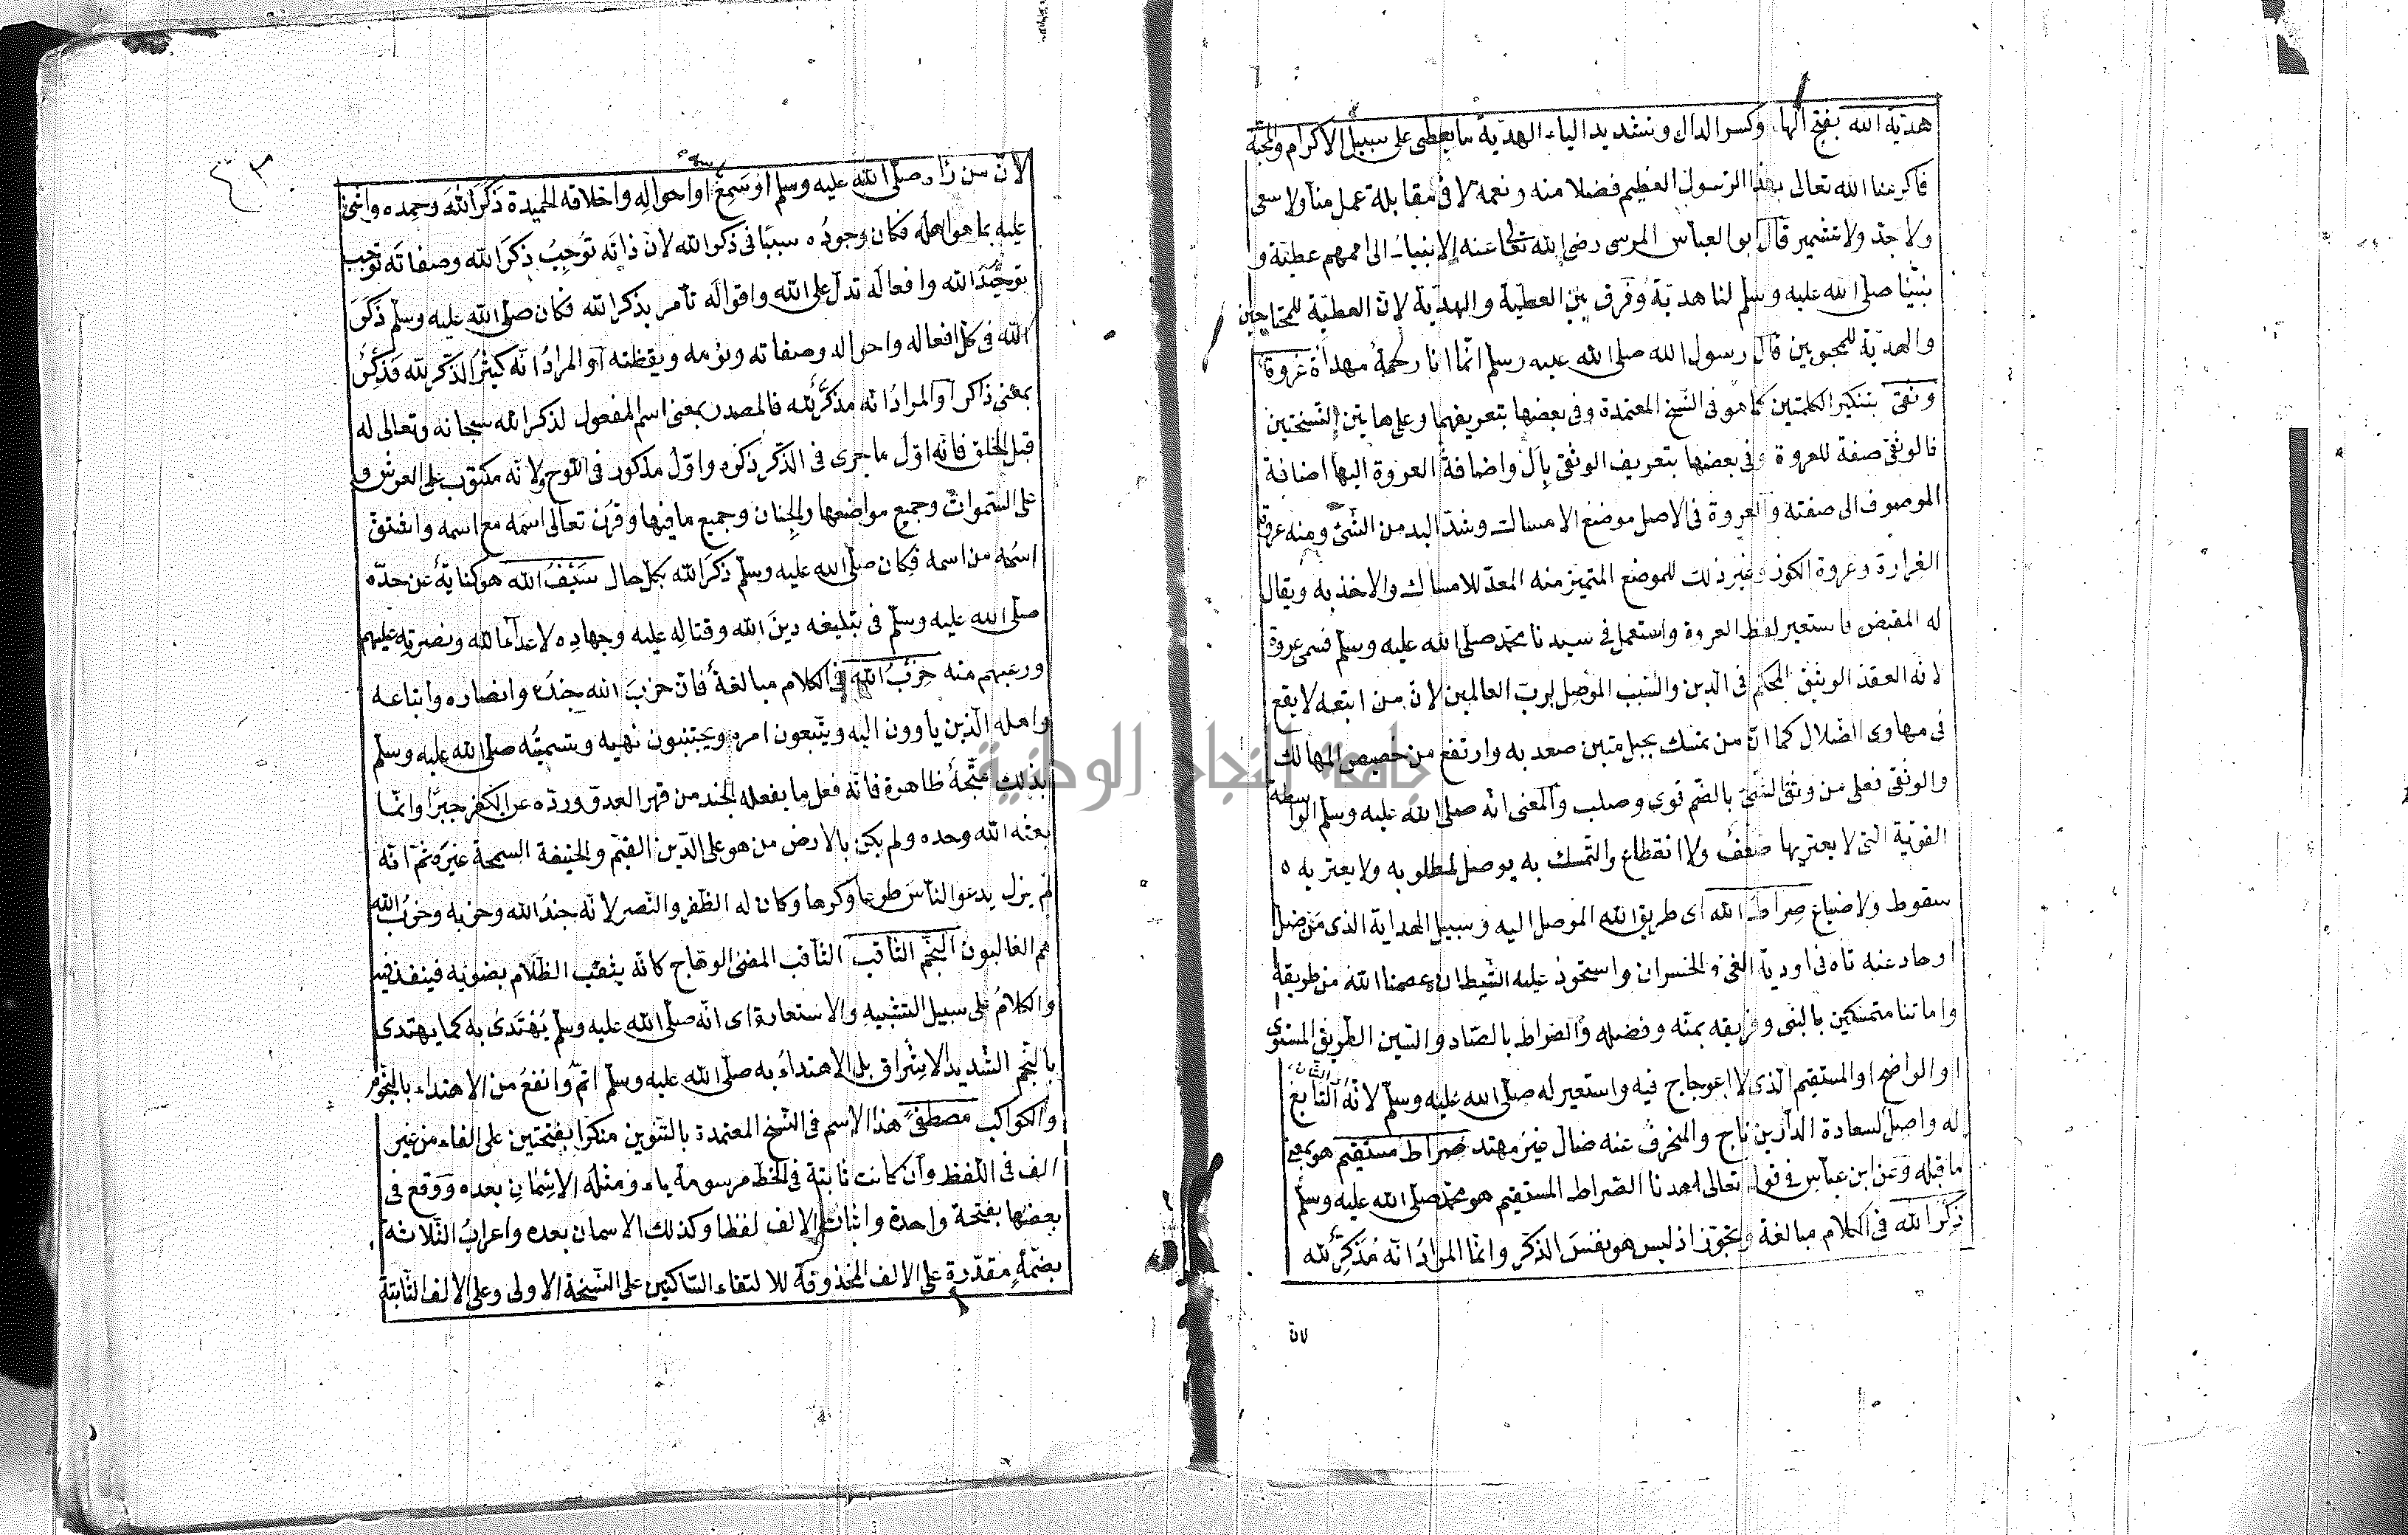 هدية الله بفتح الها وكسر الدال وتشديد الياء الهدية ما يعطى على سبيل الاكرام والمحبة
فاكرمنا الله تعالى بهذا الرسول العظيم فضلا منه ونعمة لا فى مقابلة عمل منا ولا سعى
ولا جد ولا تشمير قال ابو العباس المرسى رضى الله تعالى عنه الانبياء الى اممهم عطية و
نبينا صلى الله عليه وسلم لنا هدية وفرق بين العطية والهدية لان العطية للمحتاجين
والهدية للمحبوبين قال رسول الله صلى الله عليه وسلم انما انا رحمة مهداة عروة
وثقى بتنكير الكلمتين كما هو فى النسخ المعتمدة وفى بعضها بتعريفهما وعلى هاتين النسختين
فالوثقى صفة للعروة وفى بعضها بتعريف الوثقى بال واضافة العروة اليها اضافة
الموصوف الى صفته والعروة فى الاصل موضع الامساك وشد اليد من الشئ ومنه عروة
الغرارة وعروة الكوز وغير ذلك للموضع المتميز منه المعد للامساك والاخذ به ويقال
له المقبض فاستعير لفظ العروة واستعمل فى سيدنا محمد صلى الله عليه وسلم فسمى عروة
لانه العقد الوثيق المحكم فى الدين والسبب الموصل لرب العالمين لان من اتبعه لا يقع
فى مهاوى الضلال كما ان من تمسك بحبل متين صعد به وارتفع من حضيض المهالك
والوثقى فعلى من وثق الشئ بالضم قوى وصلب والمعنى انه صلى الله عليه وسلم الواسطة
القوية التى لا يعتريها ضعف ولا انقطاع والتمسك به يوصل لمطلوبه ولا يعتريه ه
سقوط ولا ضياع صراط الله اى طريق الله الموصل اليه وسبيل الهداية الذى من ضل
او حاد عنه تاه فى اودية الغى والخسران واستحوذ عليه الشيطان عصمنا الله من طريقه
واماتنا متمسكين بالنبى وفريقه بمنه وفضله والصراط بالصاد والسين الطريق المستوى
او الواضح او المستقيم الذى لا اعوجاج فيه واستعير له صلى الله عليه وسلم لانه التابع
له واصل لسعادة الدارين ناج والمنحرف عنه ضال غير مهتد صراط مستقيم هو بمعنى
ما قبله وعن ابن عباس فى قوله تعالى اهدنا الصراط المستقيم هو محمد صلى الله عليه وسلم
ذكر الله فى الكلام مبالغة وتجوز اذ ليس هو نفس الذكر وانما المراد انه مذكر لله
لان
٤٣
لان من رآه صلى الله عليه وسلم او سمع او احواله واخلاقه الحميدة ذكر الله وحمده واثنى
عليه بما هو اهله فكان وجوده سببا فى ذكر الله لان ذاته توجب ذكر الله وصفاته توجب
توحيد الله وافعاله تدل على الله واقواله تأمر بذكر الله فكان صلى الله عليه وسلم ذكر
الله فى كل افعاله واحواله وصفاته ونومه ويقظته او المراد انه كثير الذكر لله فذكر
بمعنى ذاكر او المراد انه مذكر لله فالمصدر بمعنى اسم المفعول لذكر الله سبحانه وتعالى له
قبل الخلق فانه اول ما جرى فى الذكر ذكره واول مذكور فى اللوح ولانه مكتوب على العرش و
على السموات وجميع مواضعها والجنان وجميع ما فيها وقرن تعالى اسمه مع اسمه واشتق
اسمه من اسمه فكان صلى الله عليه وسلم ذكر الله بكل حال سيف الله هو كناية عن حده
صلى الله عليه وسلم فى تبليغه دين الله وقتاله عليه وجهاده لاعداء الله ونصرته عليهم
ورعبهم منه حزب الله فى الكلام مبالغة فان حزب الله جنده وانصاره واتباعه
واهله الذين يأوون اليه ويتبعون امره ويجتنبون نهيه وتسميته صلى الله عليه وسلم
بذلك متجهة ظاهرة فانه فعل ما يفعله الجند من قهر العدو ورده عن الكفر جبرا وانما
بعثه الله وحده ولم يكن بالارض من هو على الدين القيم والحنيفة السمحة غيره ثم انه
لم يزل يدعو الناس طوعا وكرها وكان له الظفر والنصر لانه جند الله وحزبه وحزب الله
هم الغالبون النجم الثاقب الثاقب المضئ الوهاج كانه يثقب الظلام بضوئه فينفذ فيه
والكلام على سبيل التشبيه والاستعارة اى انه صلى الله عليه وسلم يهتدى به كما يهتدى
بالنجم الشديد الاشراق بل الاهتداء به صلى الله عليه وسلم اتم وانفع من الاهتداء بالنجوم
والكواكب مصطفى هذا الاسم فى النسخ المعتمدة بالتنوين منكرا بفتحتين على الفاء من غير
الف فى اللفظ وان كانت ثابتة فى الخط مرسومة ياء ومثله الاسمان بعده ووقع فى
بعضها بفتحة واحدة واثبات الالف لفظا وكذلك الاسمان بعده واعراب الثلاثة
بضمة مقدرة على الالف المحذوفة لالتقاء الساكنين على النسخة الاولى وعلى الالف الثابتة
جامعة النجاح الوطنية